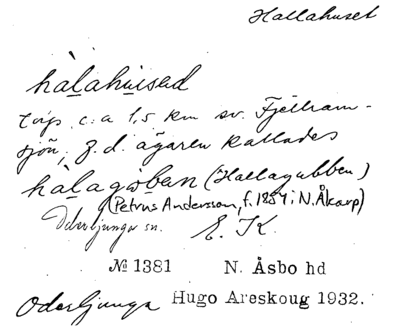 Hallahuset
hàlahuised
torp c:a 1,5 km sv. Fjällram-
sjön, f.d. ägaren kallades
hàlagòben (Hallagubben)
(Petrus Andersson, f. 1854 i N. Åkarp)
Oderljunga sn. E. IK.
№ 1381 N. Åsbo hd
Oderljunga Hugo Areskoug 1932.